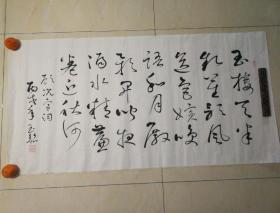 玉樓天半
起笙歌風
送宮嬪笑
語和月殿
影開聞夜
漏水精簾
卷近秋河
顧況宮詞
丙戌年